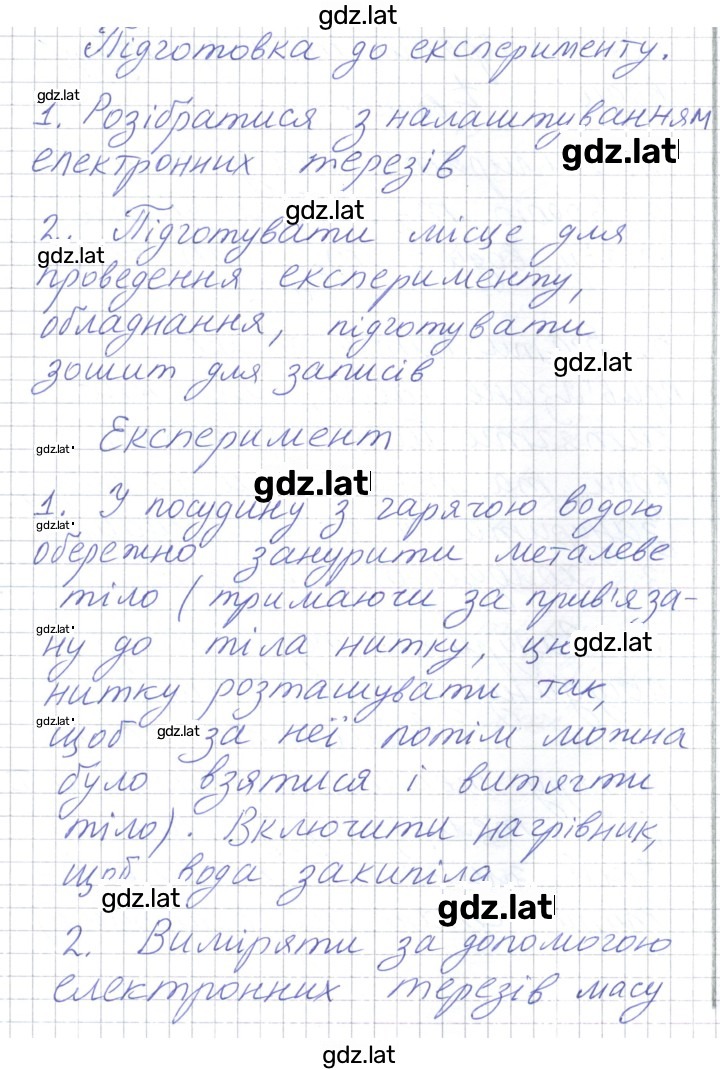 gdz.lat
Підготовка до експерименту.
gdz.lat
1. Розібратися з налаштуванням
gdz.lat
електронних терезів
gdz.lat
2. Підготувати місце для
gdz.lat
проведення експерименту,
обладнання, підготувати
gdz.lat
зошит для записів
gdz.lat
Експеримент
gdz.lat
1. У посудину з гарячою водою
gdz.lat
обережно занурити металеве
тіло (тримаючи за прив'яза-
gdz.lat
ну до тіла нитку, цю
gdz.lat
нитку розташувати так,
gdz.lat
gdz.lat
щоб за неї потім можна
було взятися і витягти
тіло). Включити нагрівник,
щоб вода закипіла
gdz.lat
gdz.lat
2. Виміряти за допомогою
електронних терезів масу
gdz.lat